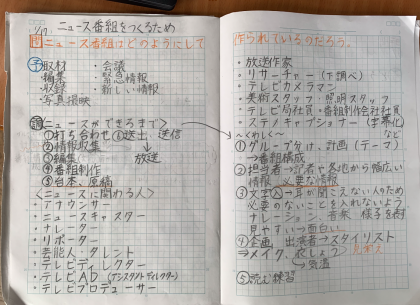 1/17 ニュース番組をつくるため
問 ニュース番組はどのようにして
予 ・取材 ・会議
・編集 ・緊急情報
・収録 ・新しい情報
・写真撮映
調 〈ニュースができるまで〉
①打ち合わせ ⑥送出、送信
②情報収集 ↓
③編集 放送
④番組制作
⑤台本、原稿
〈ニュースに関わる人〉
・アナウンサー
・ニュースキャスター
・ナレーター
・リポーター
・芸能人、タレント
・テレビディレクター
・テレビAD(アシスタントディレクター)
・テレビプロデューサー
作られているのだろう。
・放送作家
・リサーチャー(下調べ)
・テレビカメラマン
・美術スタッフ・照明スタッフ
・テレビ局社員・番組制作会社社員
・ステノキャプショナー(字幕化)
など
〜くわしく〜
①グループ分け、計画(テーマ)
→番組構成
②担当者→記者で各地から幅広い
情報 必要な情報
③文字入→耳が聞こえない人のため
必要のないことを入れないよう
ナレーション、音楽 様子を表
見やすいつ面白い
④企画 出演者→スタイリスト
⇒メイク、衣しょう
→気温
⑤読む練習